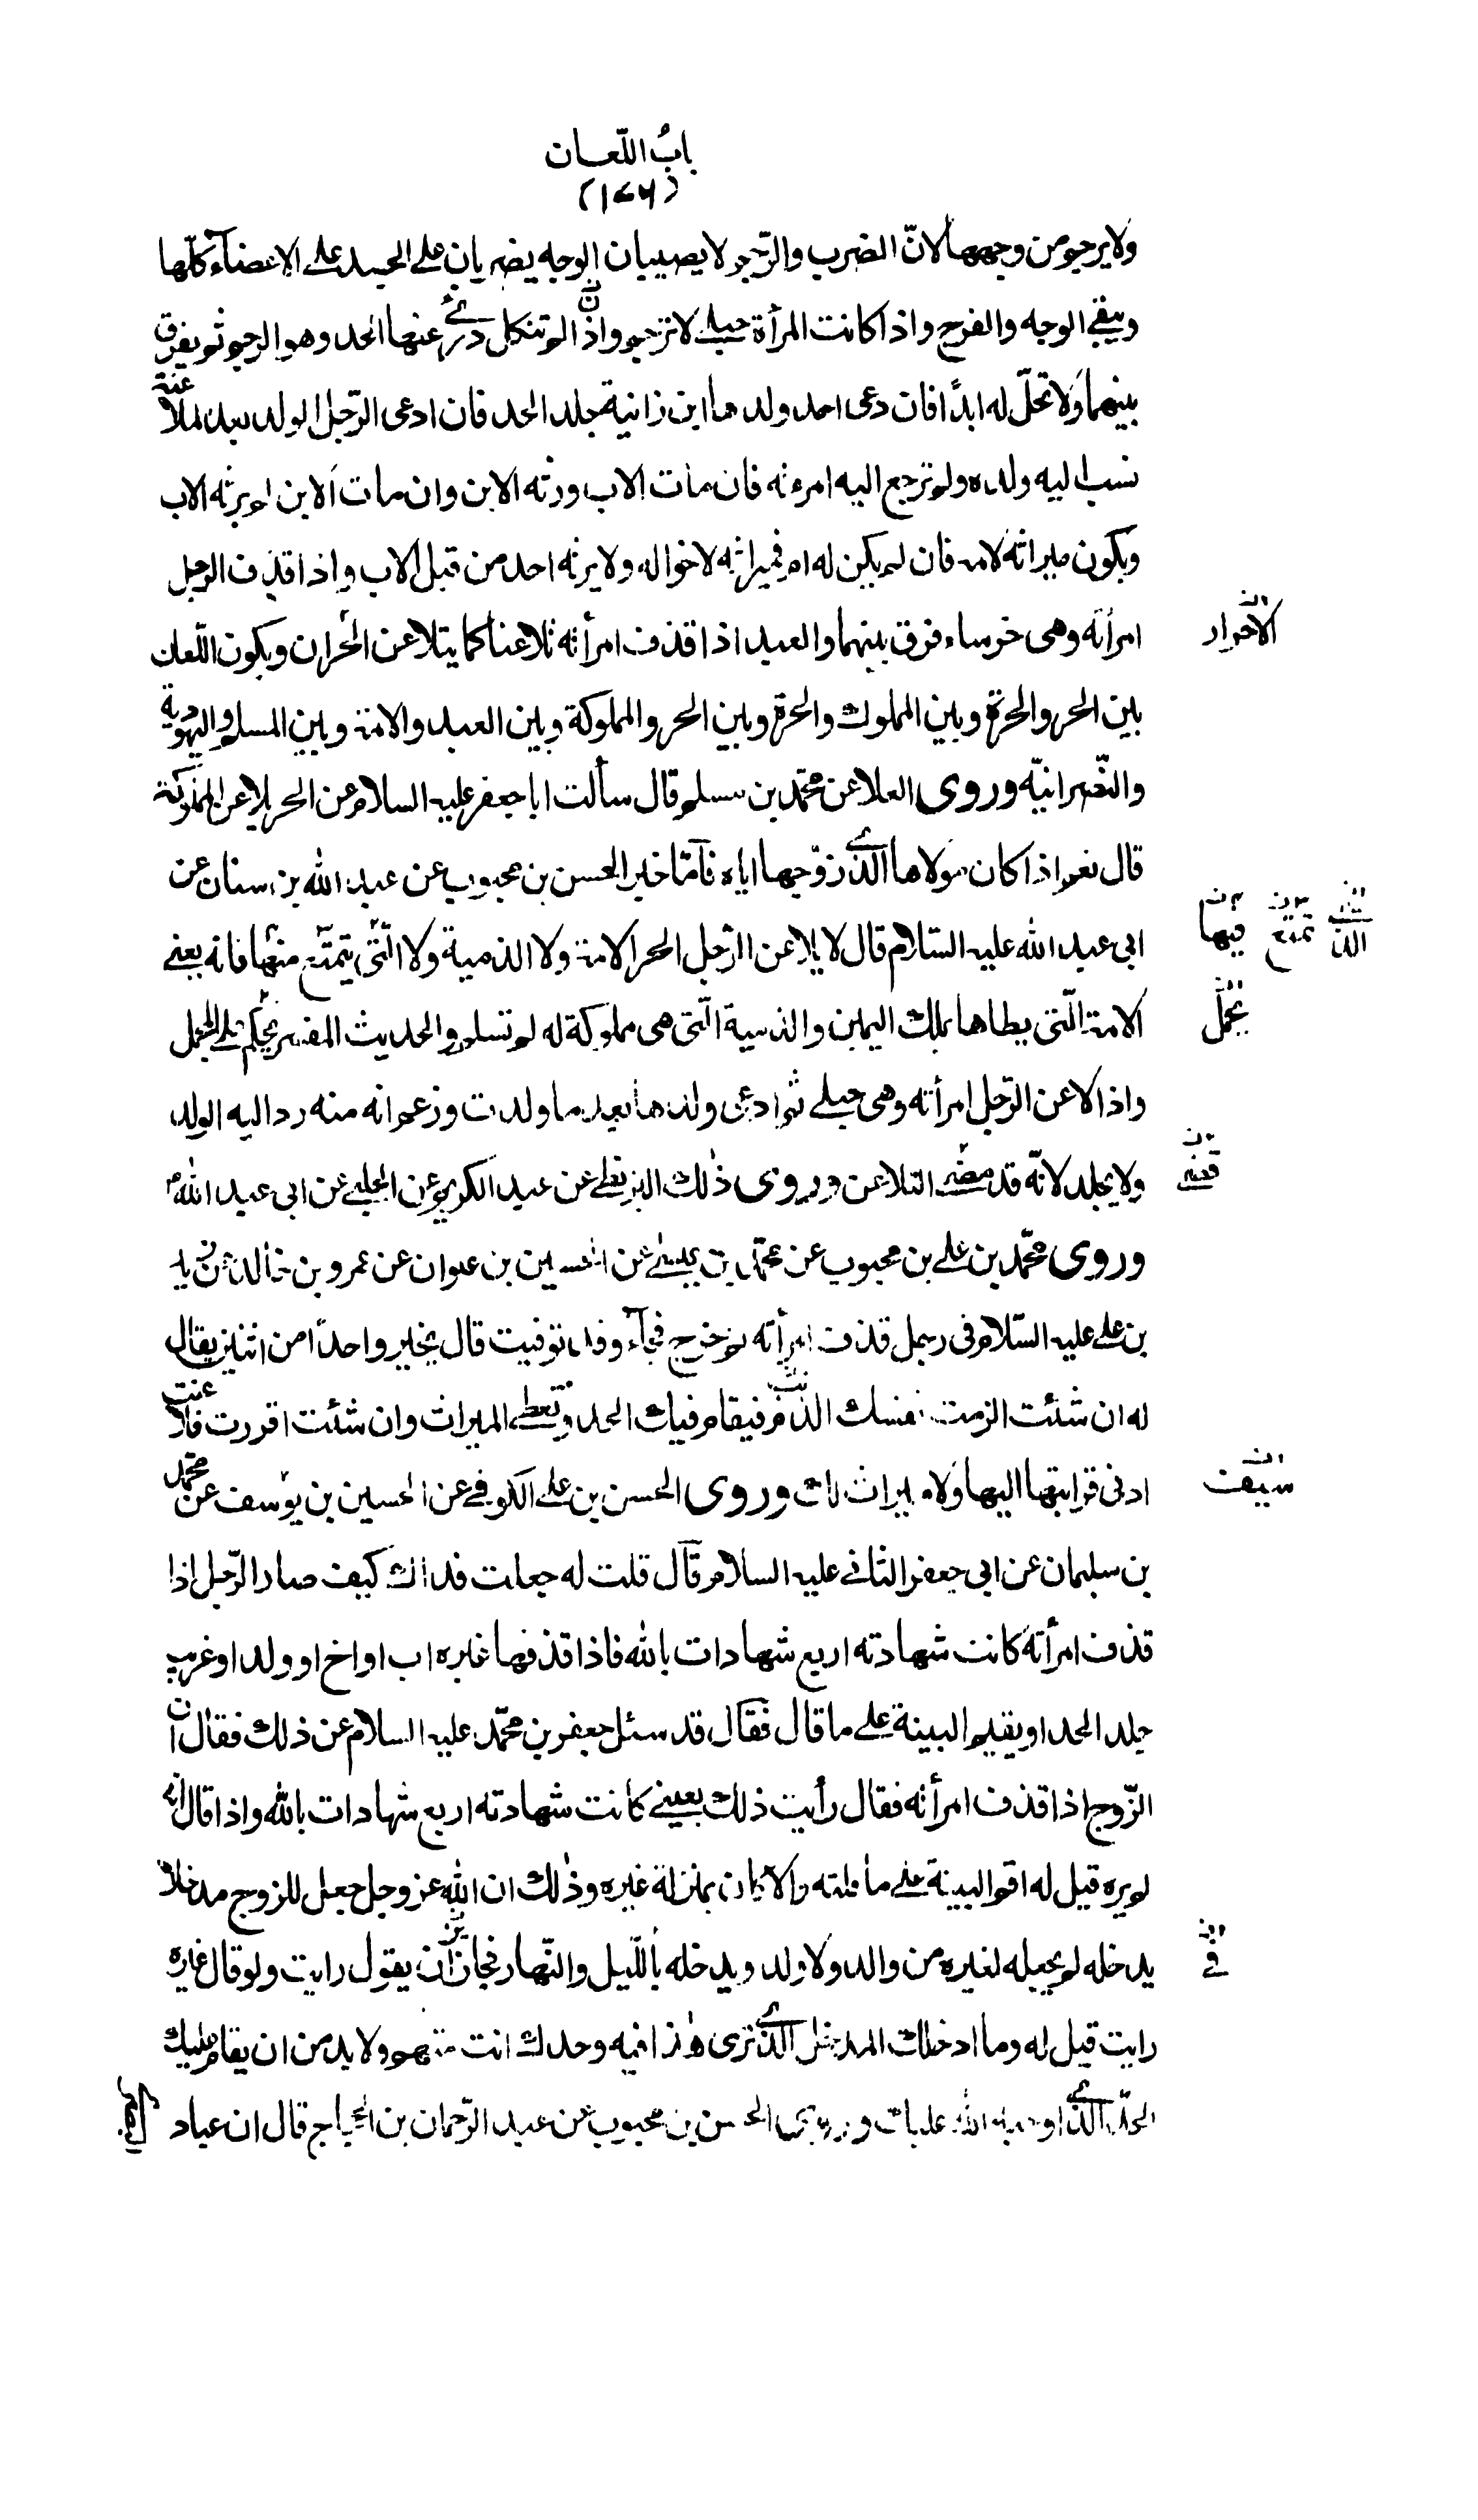 باب اللّعان
(١٧٦)
ولا يرجم من وجهها لانّ الضرب والرّجم لا يصيبان الوجه يضربان على الجسد على الاعضاء كلّها
ويتقى الوجه والفرج واذا كانت المرأة حبلى لا ترجم واذا لم تنكل درئ عنها الحد وهو الرجم ثم يفرق
بينهما ولا تحلّ له ابدًا فان دعى احد ولدها ابن زانية جلد الحد فان ادعى الرّجل الولد بعد الملاعنة
نسب اليه ولده ولم ترجع اليه امرءته فان مات الاب ورثه الابن وان مات الابن لم يرثه الاب
ويكون ميراثه لامه فان لم يكن له ام فميراثه لاخواله ولا يرثه احد من قبل الاب واذا قذف الرجل
امرأته وهى خرساء فرق بينهما والعبد اذا قذف امرأته تلاعنا كما يتلاعن الحران ويكون اللّعان
الاحرار
بين الحر والحرة وبين المملوك والحرة وبين الحر والمملوكة وبين العبد والامة وبين المسلم واليهودية
والنّصرانيّه وروى العلا عن محمّد بن مسلم قال سألت ابا جعفر عليه السلام عن الحر يلاعن المملوكة
قال نعم اذا كان مولاها الذى زوّجها اياه فامّا خبر الحسن بن محبوب عن عبد الله بن سنان عن
ابى عبد الله عليه السّلام قال لا يلاعن الرّجل الحر الامة ولا الذمية ولا الّتى يتمتّع منها فانه يعنى
فيها تمتع
الامة الّتى يطاها بملك اليمين والذمية الّتى هى مملوكة له لم تسلم والحديث المفسر يحكم على المجمل
مجمل
واذا لاعن الرّجل امرأته وهى حبلى ثم ادعى ولدها بعد ما ولدت وزعم انه منه رد اليه الولد
ولا يجلد لانّه قد مضى التلاعن وروى ذلك البزنطى عن عبد الكريم عن الحلبى عن ابى عبد الله
وروى محمّد بن على بن محبوب عن محمّد بن عيسى عن الحسين بن علوان عن عمرو بن خالد عن زيد
بن على عليه السّلام فى رجل قذف امرأته ثم خرج فجاء وقد توفيت قال يخير واحدًا من اثنين يقال
له ان شئت الزمت نفسك الذنب فيقام فيك الحد وتعطى الميراث وان شئت اقررت فلاعنت
ادنى قرابتها اليها ولا ميراث لك وروى الحسن بن على الكوفى عن الحسين بن يوسف عن محمّد
سيف
بن سليمان عن ابى جعفر الثانى عليه السلام قال قلت له جعلت فداك كيف صار الرّجل اذا
قذف امرأته كانت شهادته اربع شهادات بالله فاذا قذفها غيره اب او اخ او ولد او غريب
جلد الحد او يقيم البينة على ما قال فقال قد سئل جعفر بن محمّد عليه السلام عن ذلك فقال ان
الزّوج اذا قذف امرأته فقال رأيت ذلك بعينى كانت شهادته اربع شهادات بالله واذا قال انه
لم يره قيل له اقم البينة على ما قلته والا كان بمنزلة غيره وذلك ان الله عز وجل جعل للزوج مدخلا
يدخله لم يجعله لغيره من والد ولا ولد ويدخله بالّيل والنّهار فجاز ان يقول رايت ولو قال غيره
فى
رايت قيل له وما ادخلك المدخل الذى ترى هذا فيه وحدك انت متهم ولا بد من ان يقام عليك
الحدّ الذى اوجبه الله عليك وروى الحسن بن محبوب عن عبد الرّحمان بن الحجاج قال ان عباد